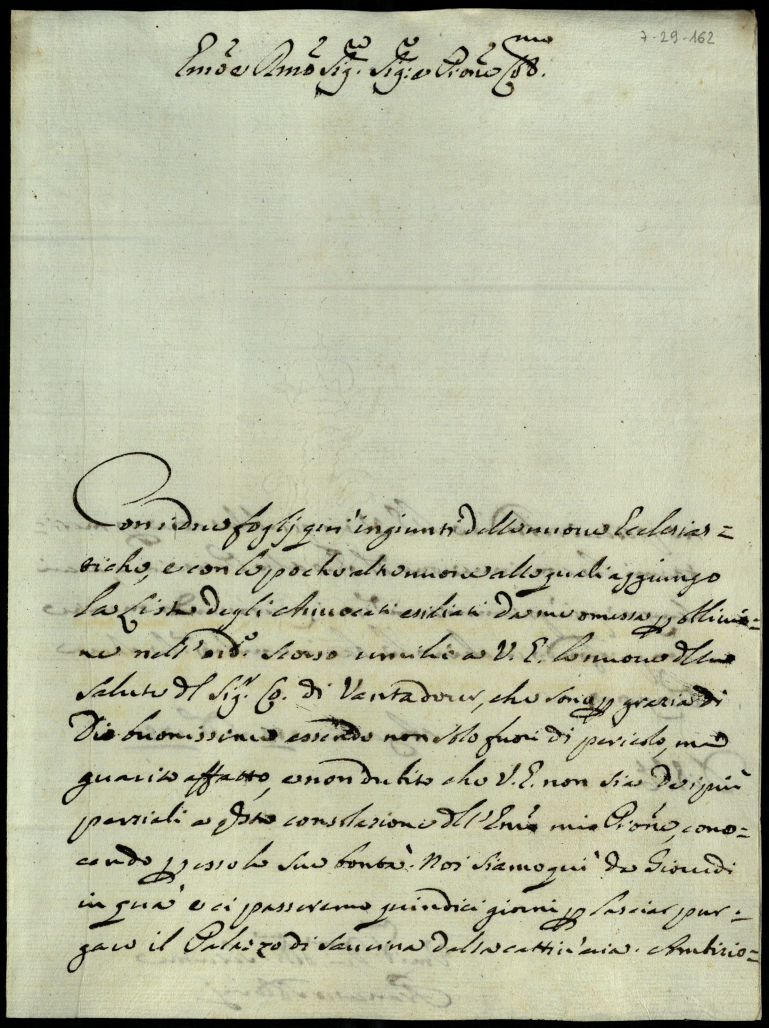 7-29-162
Em.o e R.mo Sig.re Sig.re e P̃rone Col.mo
Con i due foglj quì ingiunti delle nuove Ecclesias=
tiche, e con le poche altre nuove alle quali aggiungo
la Lista degli Avvocati esiliati da me omessa p oblivio=
ne nell' ord.o scorso umilio a V. E. le nuove della
salute del Sig.r Co. di Vantadour, che sono p grazia di
Dio buonissime essendo non solo fuori di pericolo, ma
guarito affatto, e non dubito che V. E. non sia de i più
parziali a q̃sta consolazione dell' Em̃o mio P̃rone, cono=
cendo p esso la sua bontà. Noi siamo quì da Giovedì
in quà e ci passeremo quindici giorni p lasciar pur=
gare il Palazzo di Saverna dalla cattiv' aria. Ambirio=